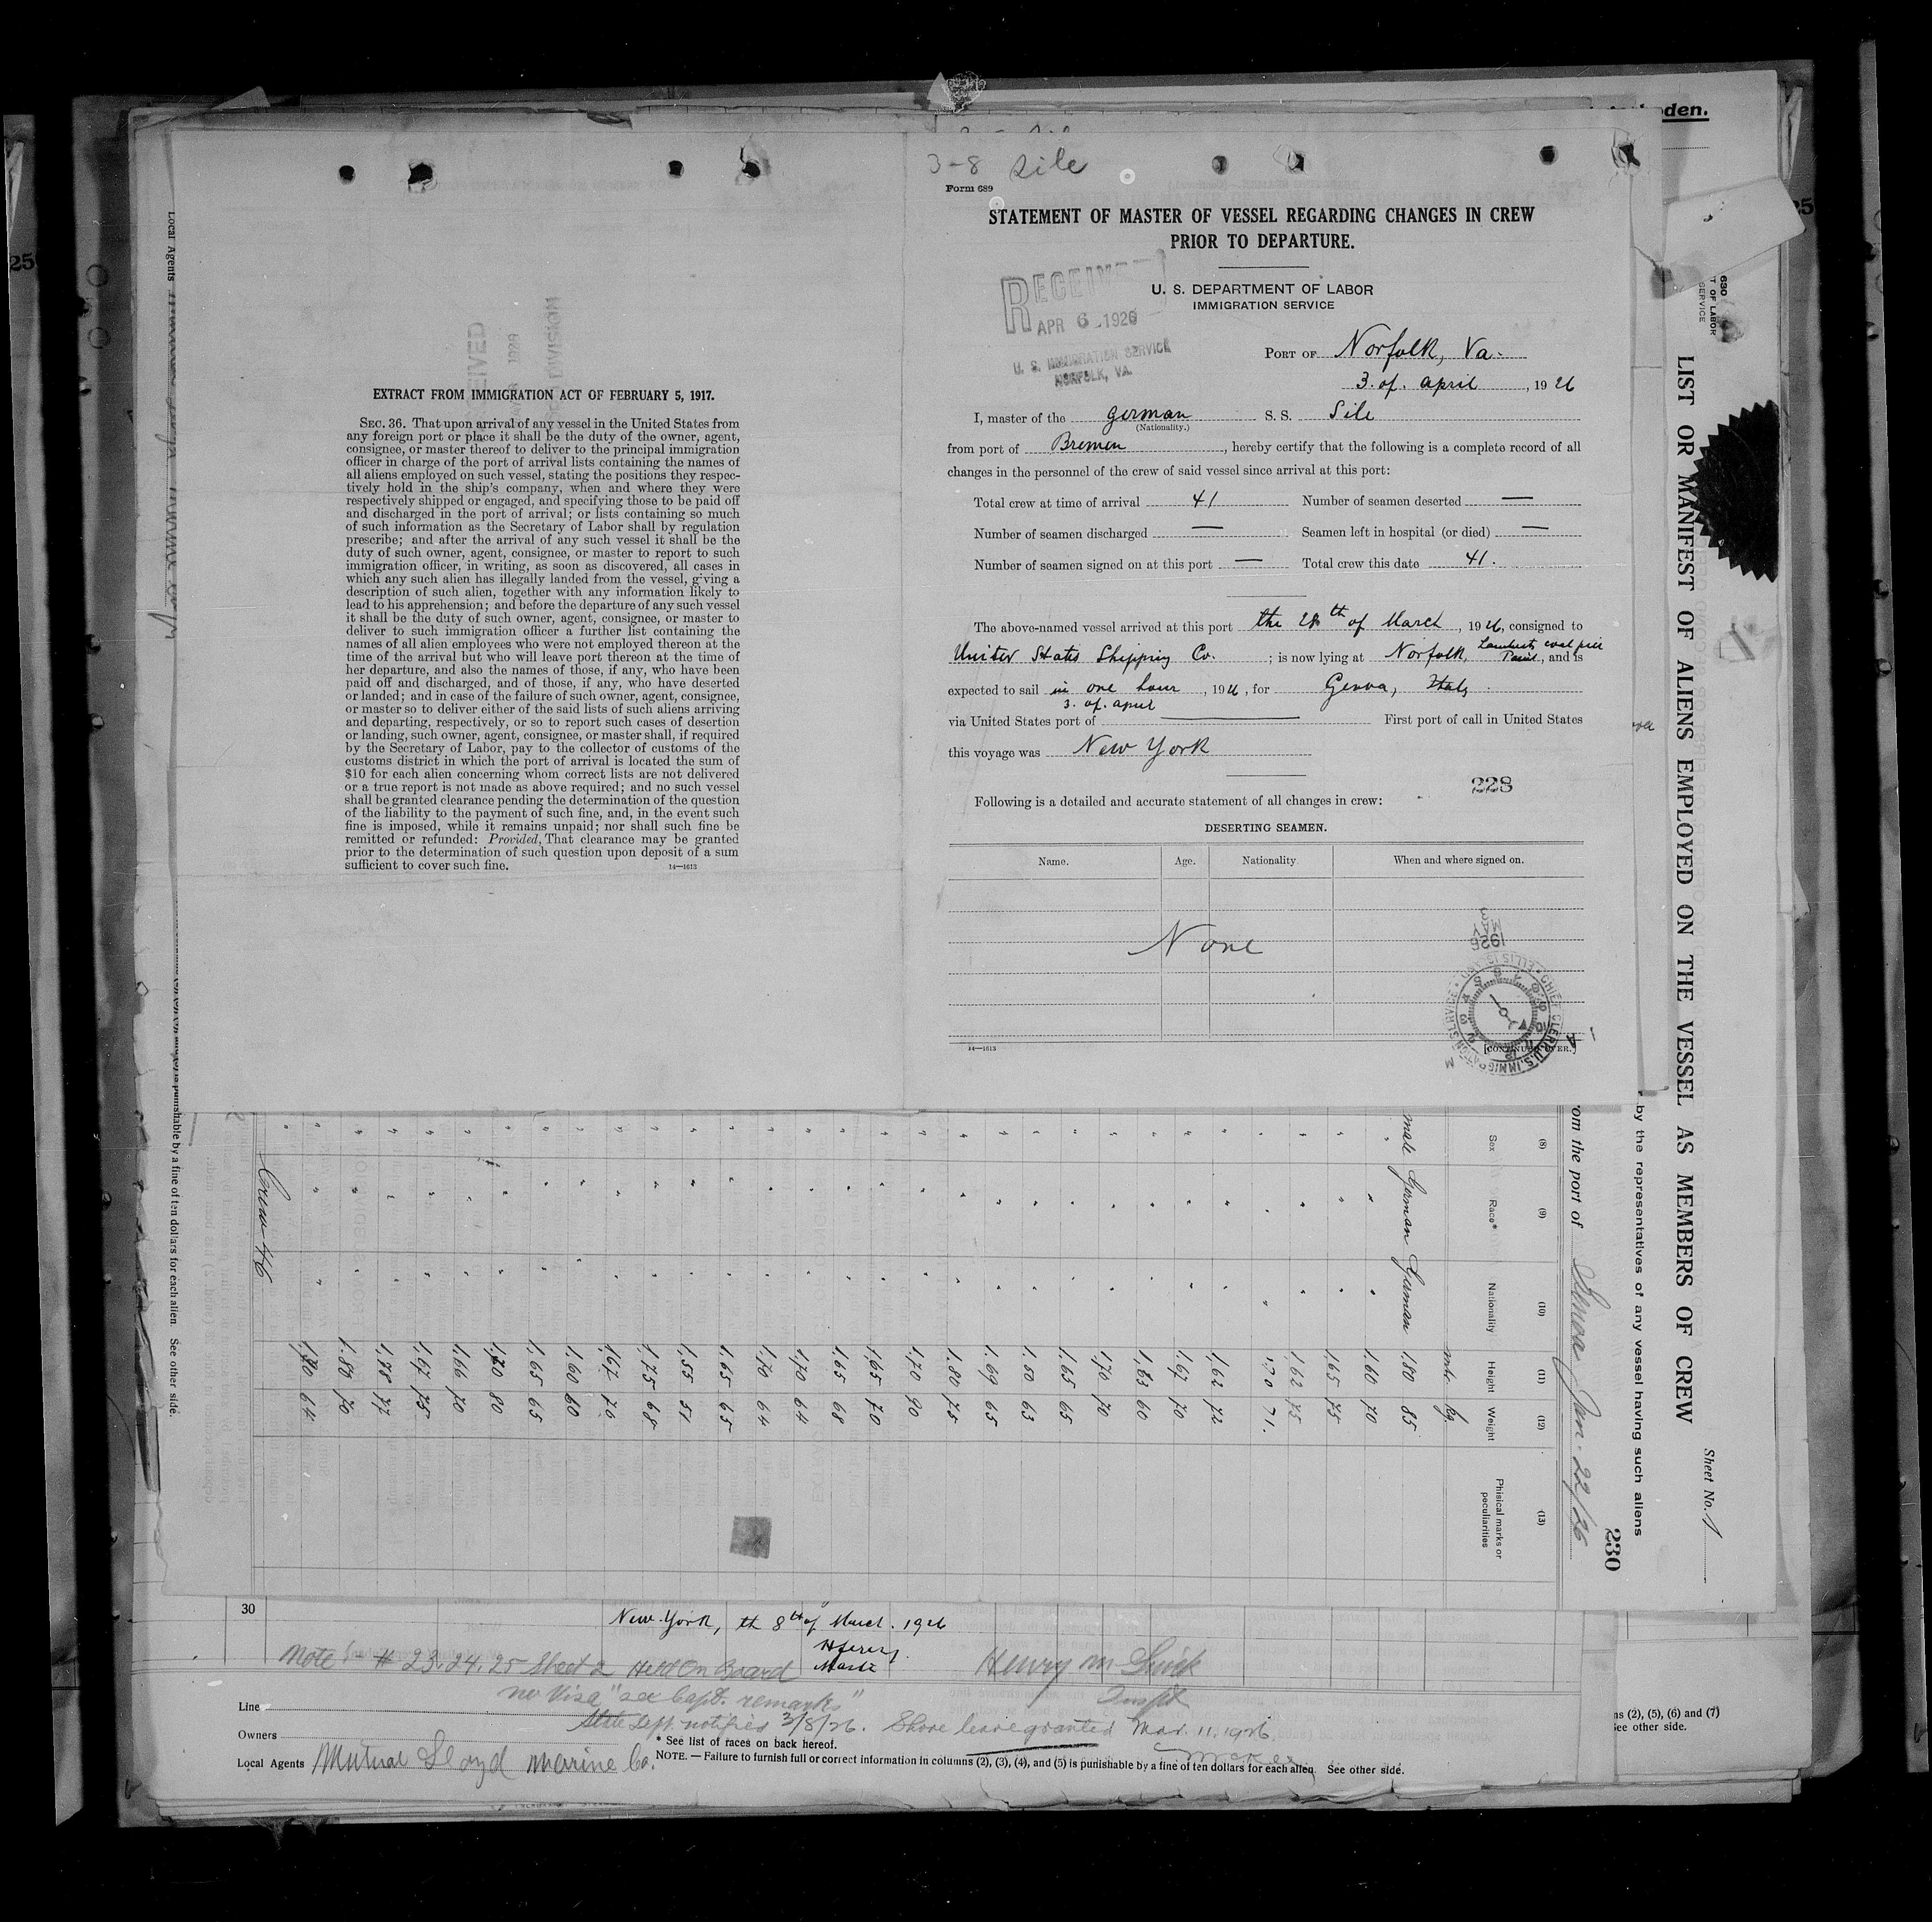 oden.
3-8 Sile
Form 689
STATEMENT OF MASTER OF VESSEL REGARDING CHANGES IN CREW
PRIOR TO DEPARTURE.
U. S. DEPARTMENT OF LABOR
IMMIGRATION SERVICE
RECEIVED
APR 6 1926
U. S. IMMIGRATION SERVICE
NORFOLK, VA.
PORT OF Norfolk, Va.
3. of. april, 1926
I, master of the german S. S. Sile
(Nationality.)
from port of Bremen, hereby certify that the following is a complete record of all
changes in the personnel of the crew of said vessel since arrival at this port:
Total crew at time of arrival 41 Number of seamen deserted —
Number of seamen discharged — Seamen left in hospital (or died) —
Number of seamen signed on at this port — Total crew this date 41.
The above-named vessel arrived at this port the 28th of March, 1926, consigned to
United States Shipping Co.; is now lying at Norfolk, Lamberts coal pier, and is
expected to sail in one hour, 1926, for Genoa, Italy.
3. of. april
via United States port of — First port of call in United States
this voyage was New York
228
Following is a detailed and accurate statement of all changes in crew:
DESERTING SEAMEN.
Name. Age. Nationality. When and where signed on.
None
MAY
1926
14—1613
[CONTINUED OVER.]
EXTRACT FROM IMMIGRATION ACT OF FEBRUARY 5, 1917.
SEC. 36. That upon arrival of any vessel in the United States from
any foreign port or place it shall be the duty of the owner, agent,
consignee, or master thereof to deliver to the principal immigration
officer in charge of the port of arrival lists containing the names of
all aliens employed on such vessel, stating the positions they respec-
tively hold in the ship's company, when and where they were
respectively shipped or engaged, and specifying those to be paid off
and discharged in the port of arrival; or lists containing so much
of such information as the Secretary of Labor shall by regulation
prescribe; and after the arrival of any such vessel it shall be the
duty of such owner, agent, consignee, or master to report to such
immigration officer, in writing, as soon as discovered, all cases in
which any such alien has illegally landed from the vessel, giving a
description of such alien, together with any information likely to
lead to his apprehension; and before the departure of any such vessel
it shall be the duty of such owner, agent, consignee, or master to
deliver to such immigration officer a further list containing the
names of all alien employees who were not employed thereon at the
time of the arrival but who will leave port thereon at the time of
her departure, and also the names of those, if any, who have been
paid off and discharged, and of those, if any, who have deserted
or landed; and in case of the failure of such owner, agent, consignee,
or master so to deliver either of the said lists of such aliens arriving
and departing, respectively, or so to report such cases of desertion
or landing, such owner, agent, consignee, or master shall, if required
by the Secretary of Labor, pay to the collector of customs of the
customs district in which the port of arrival is located the sum of
$10 for each alien concerning whom correct lists are not delivered
or a true report is not made as above required; and no such vessel
shall be granted clearance pending the determination of the question
of the liability to the payment of such fine, and, in the event such
fine is imposed, while it remains unpaid; nor shall such fine be
remitted or refunded: Provided, That clearance may be granted
prior to the determination of such question upon deposit of a sum
sufficient to cover such fine.
14—1613
LIST OR MANIFEST OF ALIENS EMPLOYED ON THE VESSEL AS MEMBERS OF CREW
Sheet No. 1
by the representatives of any vessel having such aliens
230
from the port of Genoa Jan. 22/26
(8) (9) (10) (11) (12) (13)
Sex Race* Nationality Height Weight Phisical marks or peculiarities
mtr. kg.
male German German 1.80 85
1.60 70
1.65 75
1.62 75
1.70 71.
1.62 72
1.67 70
1.63 60
1.70 70
1.65 65
1.50 63
1.69 65
1.80 75
1.70 90
1.65 70
1.65 68
1.70 64
1.70 64
1.65 65
1.55 51
1.75 68
1.67 70
1.60 60
1.65 65
1.70 80
1.66 70
1.67 75
1.78 77
1.80 70
1.70 64
Crew 46
Local Agents
punishable by a fine of ten dollars for each alien. See other side.
30
New-York, th 8th of March. 1926
Note # 23.24.25 Sheet 2 Held On Board
Henry M
no Visa "see Capt. remarks"
State Dept. notified 3/8/26. Shore leave granted Mar. 11, 1926
Line
Owners
* See list of races on back hereof.
Local Agents Mutual Lloyd Marine Co.
NOTE. — Failure to furnish full or correct information in columns (2), (3), (4), and (5) is punishable by a fine of ten dollars for each alien. See other side.
(2), (5), (6) and (7)
See other side.